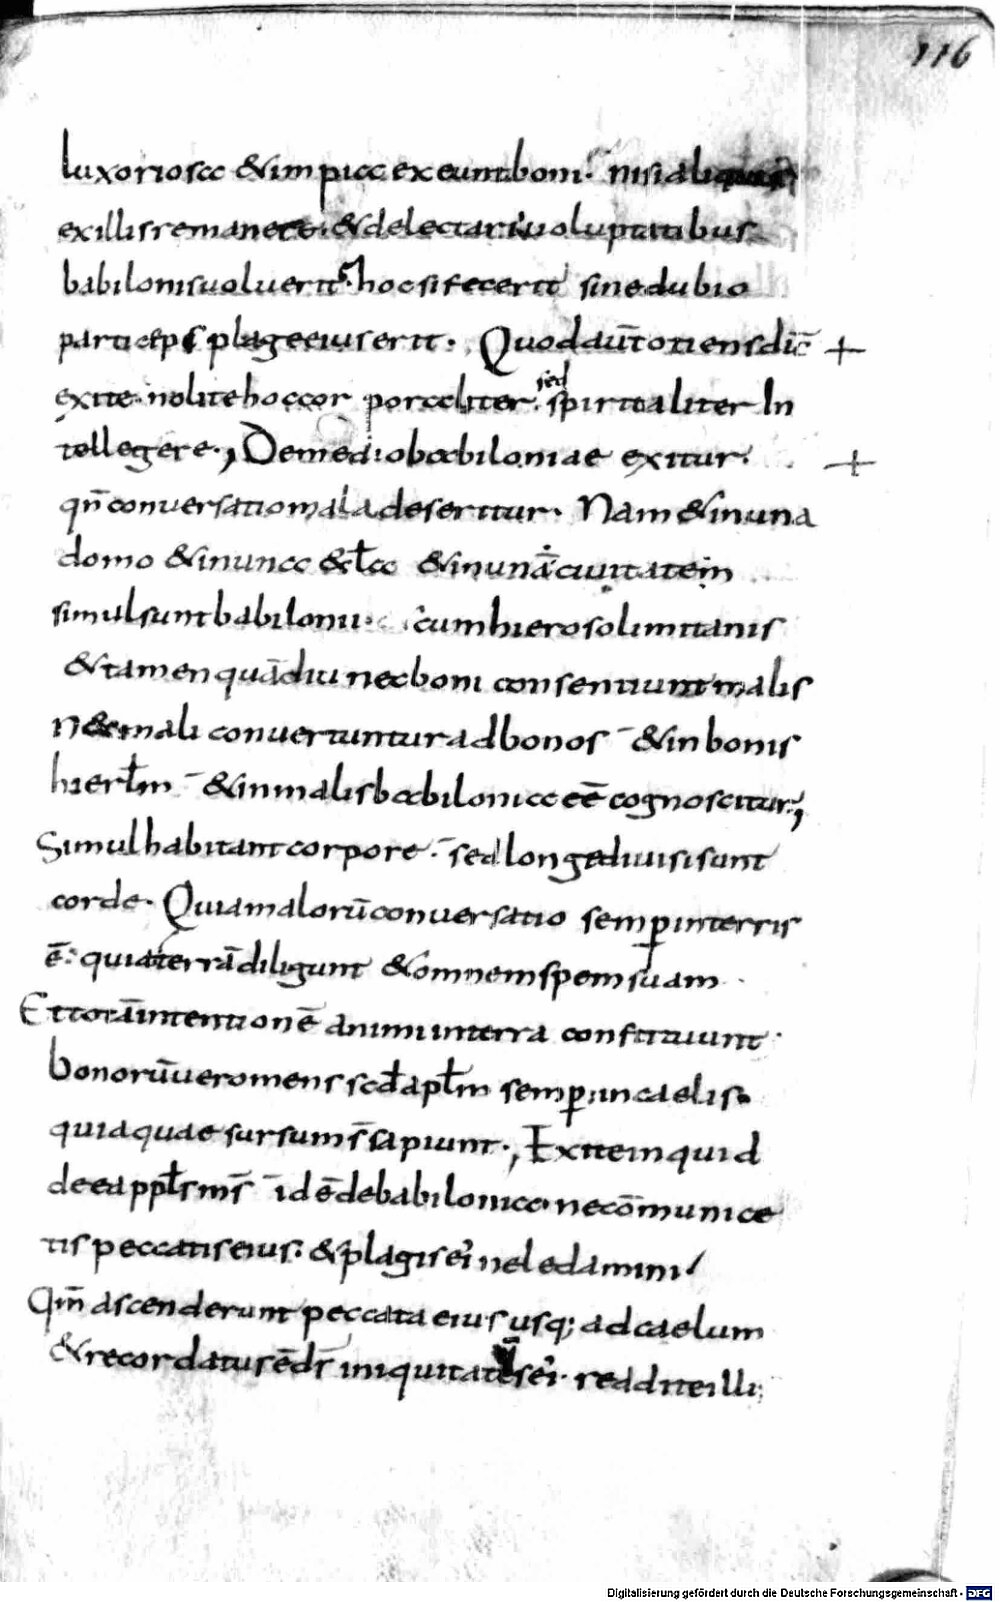 116
luxoriosa &impia exeunt boni. nisi aliquis
ex illis remanere. &delectari uoluptatibus
babilonis uoluerit. hoc si fecerit sine dubio
particeps plage eius erit. Quod aut̄ otiens dic̄
exite. nolite hoc corporaliter. sed spiritaliter In
tellegere., De medio babiloniae exitur.
qn̄ conuersatio mala deseritur. Nam &in una
domo &in una &cł̄a &in unā ciuitatem
simul sunt babilonii. cum hierosolimitanis
&tamen quādiu nec boni consentiunt malis
nec mali conuertuntur ad bonos &in bonis
hierłm &in malis babilonica eē cognoscitur.,
Simul habitant corpore. sed longe diuisi sunt
corde. Quia malorū conuersatio semp̱ in terris
ē. quia terrā diligunt &omnem spem suam
Et totā intentionē animi in terra constituunt.
bonorū uero mens scd̄ apłm semp̱ in caelis.
quia quae sursum s̄ sapiunt., Exite inquid
de ea pp̄ls ms̄ id ē de babilonica. ne cōmunice
tis peccatis eius. &plagis ei' ne ledamini
Qm̄ ascenderunt peccata eius usq; ad caelum
&recordatus ē ds̄ iniquitates ei'. reddite illi;
Digitalisierung gefördert durch die Deutsche Forschungsgemeinschaft - DFG